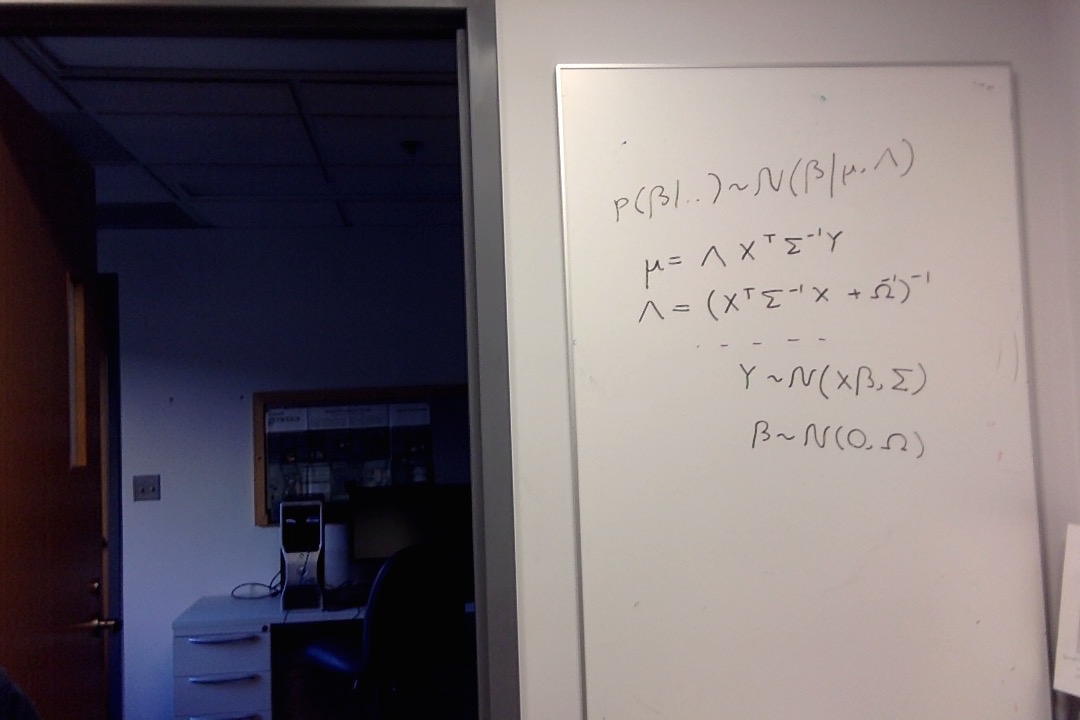 p(β|..) ~ N(β|μ, Λ)
μ = Λ X^T Σ^-1 Y
Λ = (X^T Σ^-1 X + Ω^-1)^-1
- - - -
Y ~ N(Xβ, Σ)
β ~ N(0, Ω)